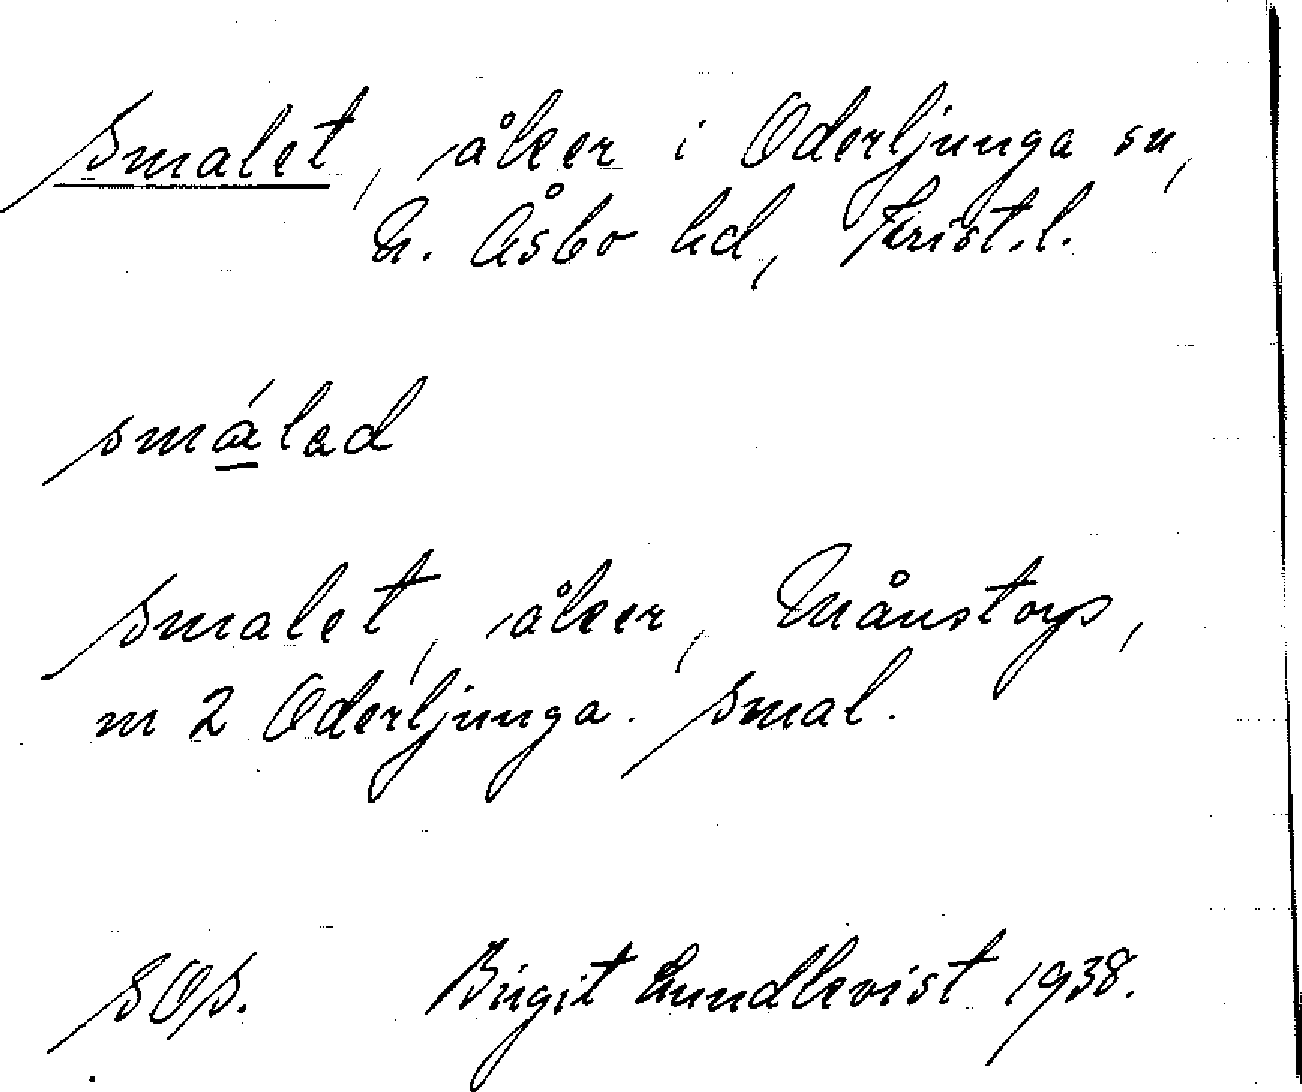 Smalet, åker i Oderljunga sn,
N. Åsbo hd, Krist.l.
smá̱lad
Smalet, åker, Månstorp,
m 2 Oderljunga. Smal.
SOS. Birgit Lundkvist 1938.